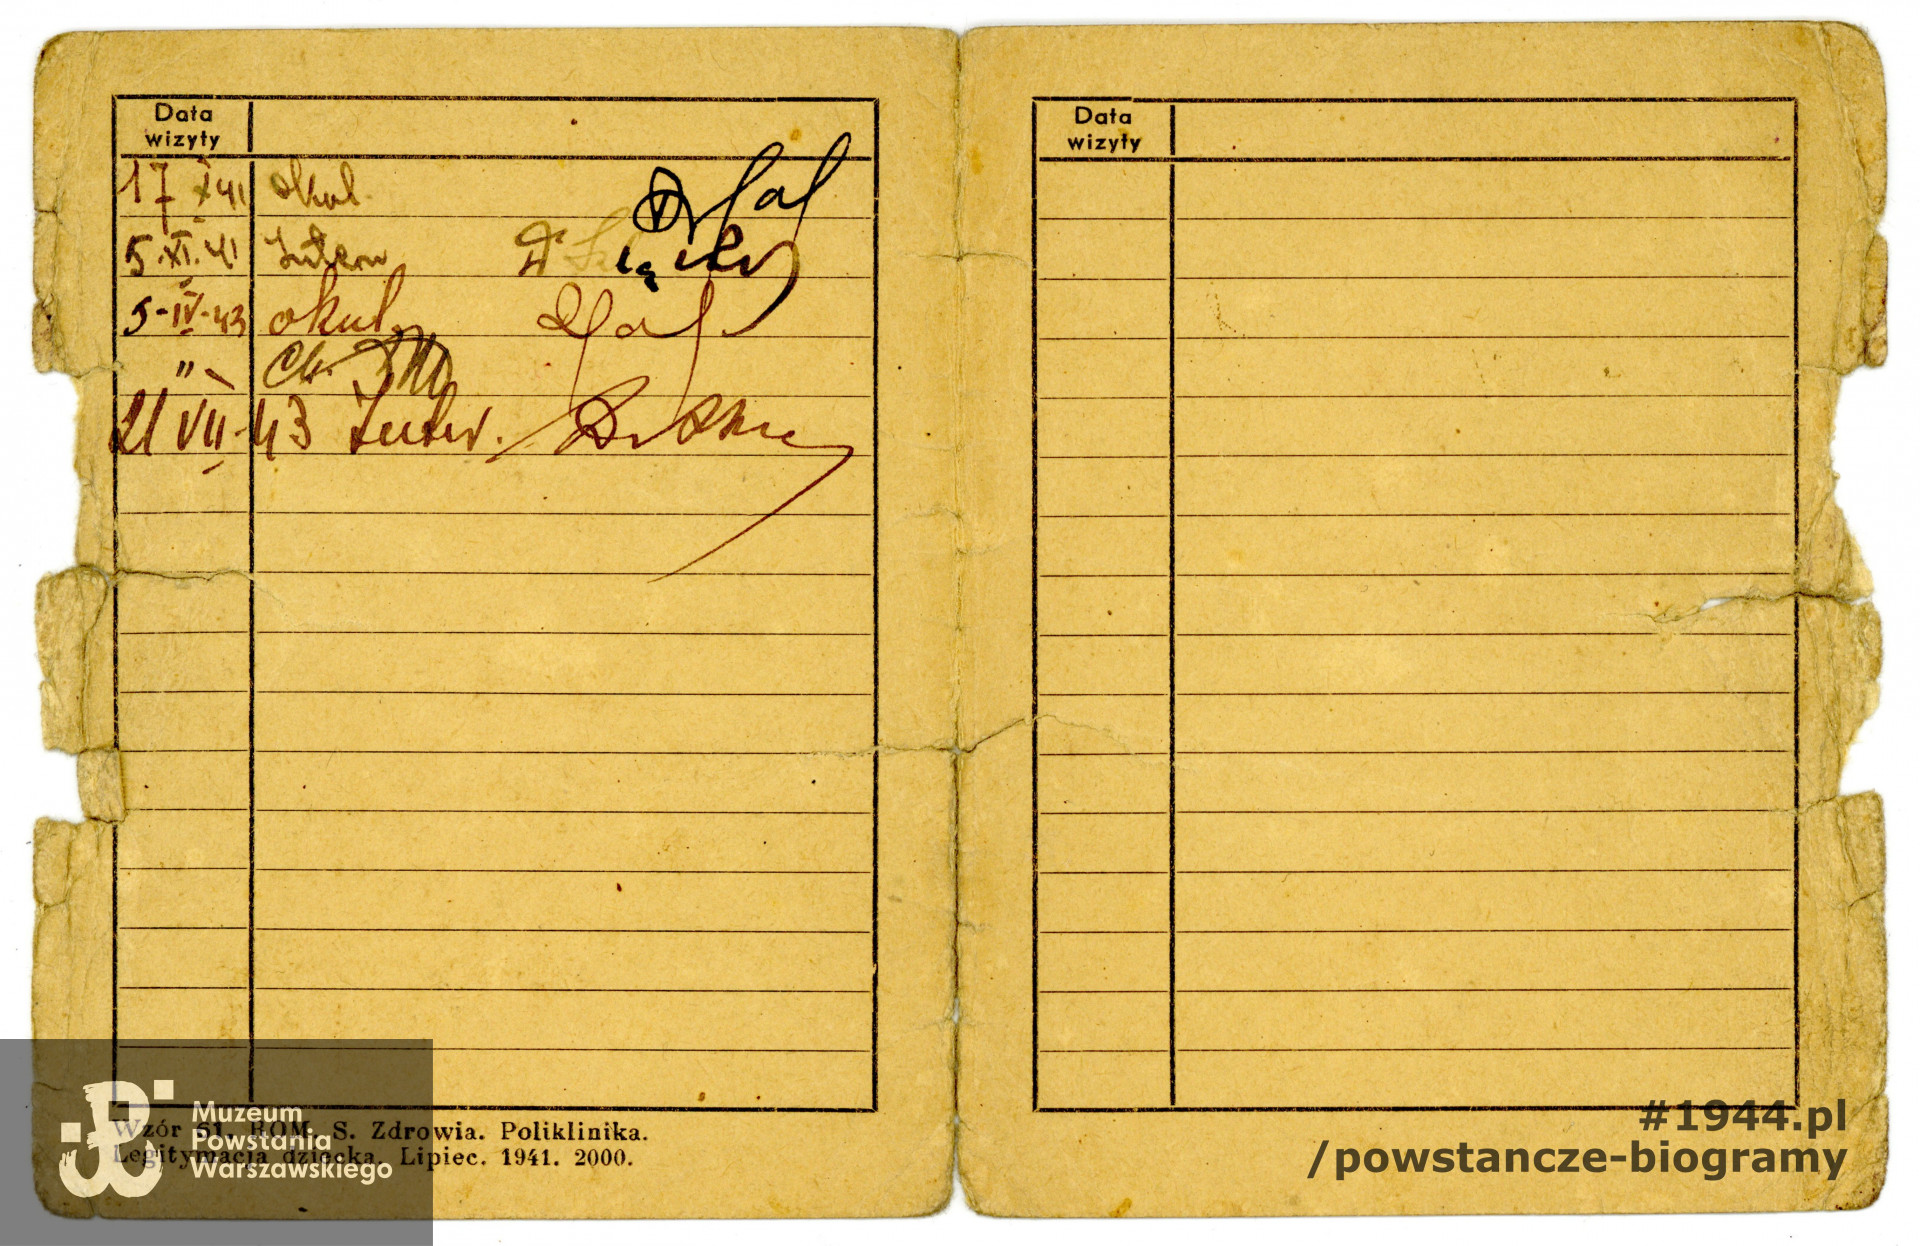 Data
wizyty
17 X 41 okul.
5.XI.41 Intern Dr
5-IV-43 okul.
" Ch.
21 VII-43 Inter. Dr
Wzór 61. ROM. S. Zdrowia. Poliklinika.
Legitymacja dziecka. Lipiec. 1941. 2000.
Muzeum
Powstania
Warszawskiego
Data
wizyty
#1944.pl
/powstancze-biogramy